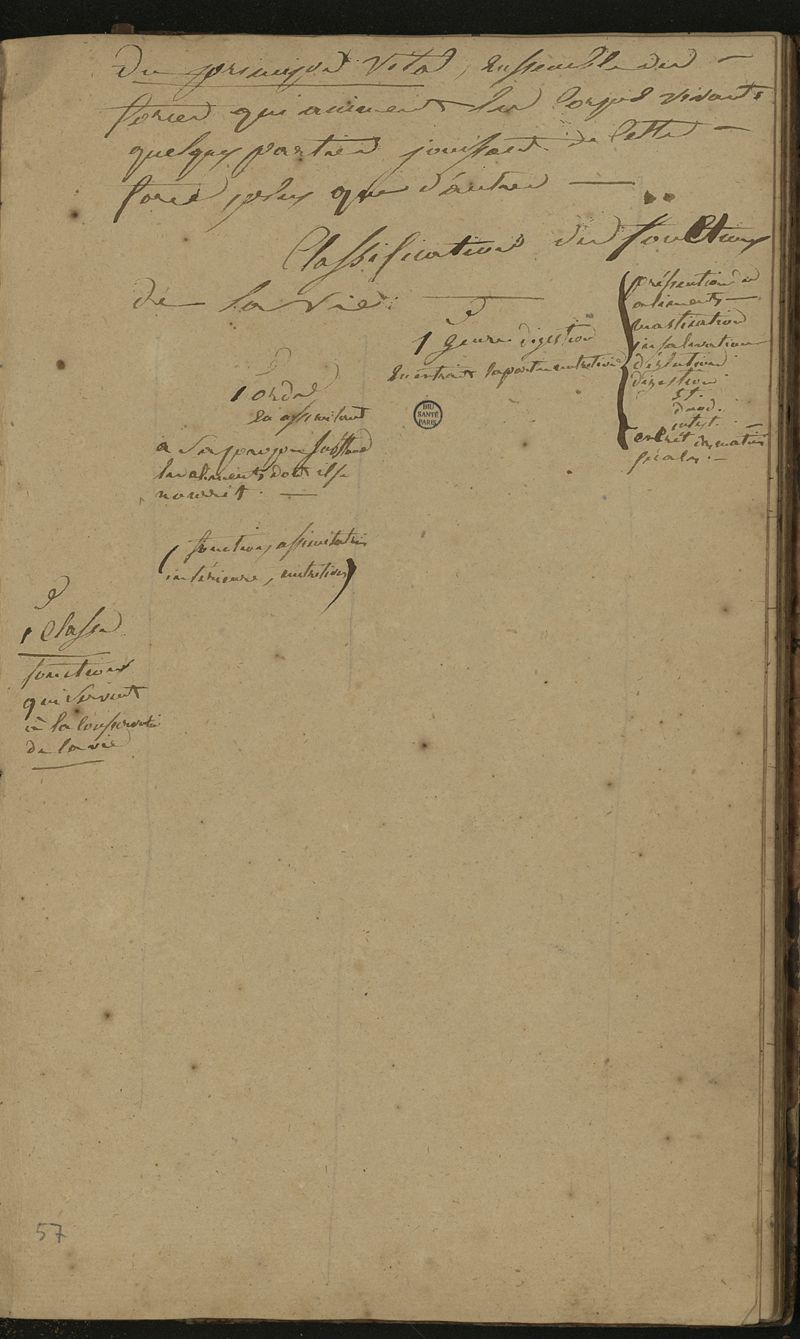 Du principe Vital, Ensemble des —
forces qui animent les corps vivants
quelques parties jouissent de cette —
force plus que d'autres —
Classification des fonctions
de la Vie. —
1e Genre digestion
En extrait la partie nutritive
{ préhension des
aliments —
mastication
insalivation
déglutition
digestion
St.
duod.
intest. —
excret des matières
fécales. —
1e ordre
En assimilant
a Sa propre Substance
les aliments dont il se
nourrit. —
( fonctions assimilatrices
intérieure, nutritives )
1e Classe
fonctions
qui Servent
à la Conservati
de la vie
BIU
SANTÉ
PARIS
57